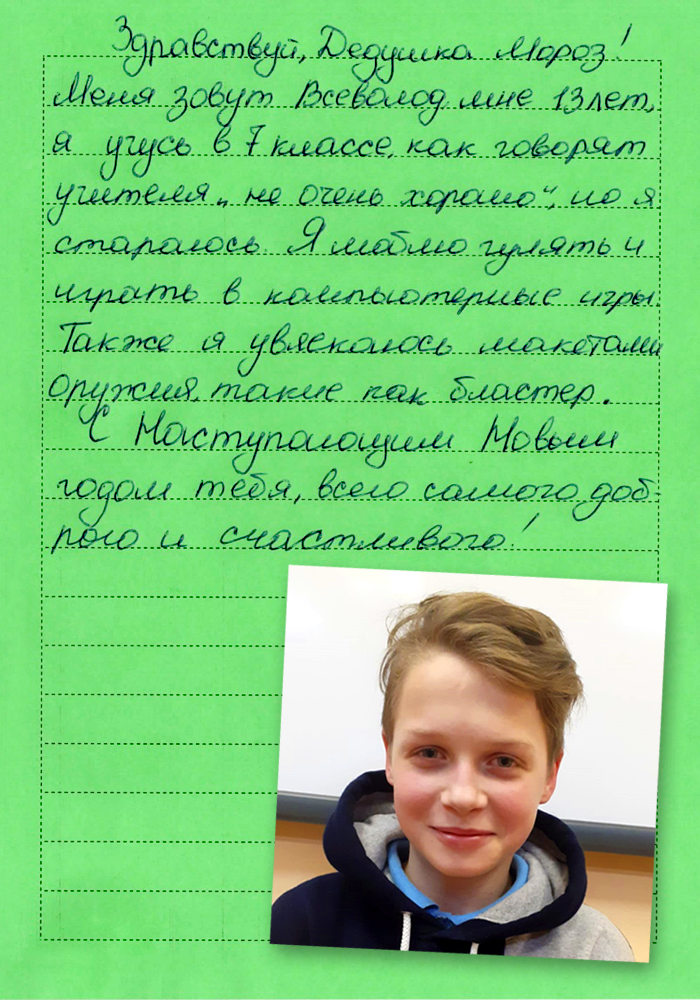 Здравствуй, Дедушка Мороз!
Меня зовут Всеволод мне 13 лет,
я учусь в 7 классе, как говорят
учителя „не очень хорошо“, но я
стараюсь. Я люблю гулять и
играть в компьютерные игры.
Также я увлекаюсь макетами
оружия, такие как бластер.
С Наступающим Новым
годом тебя, всего самого доб-
рого и счастливого!